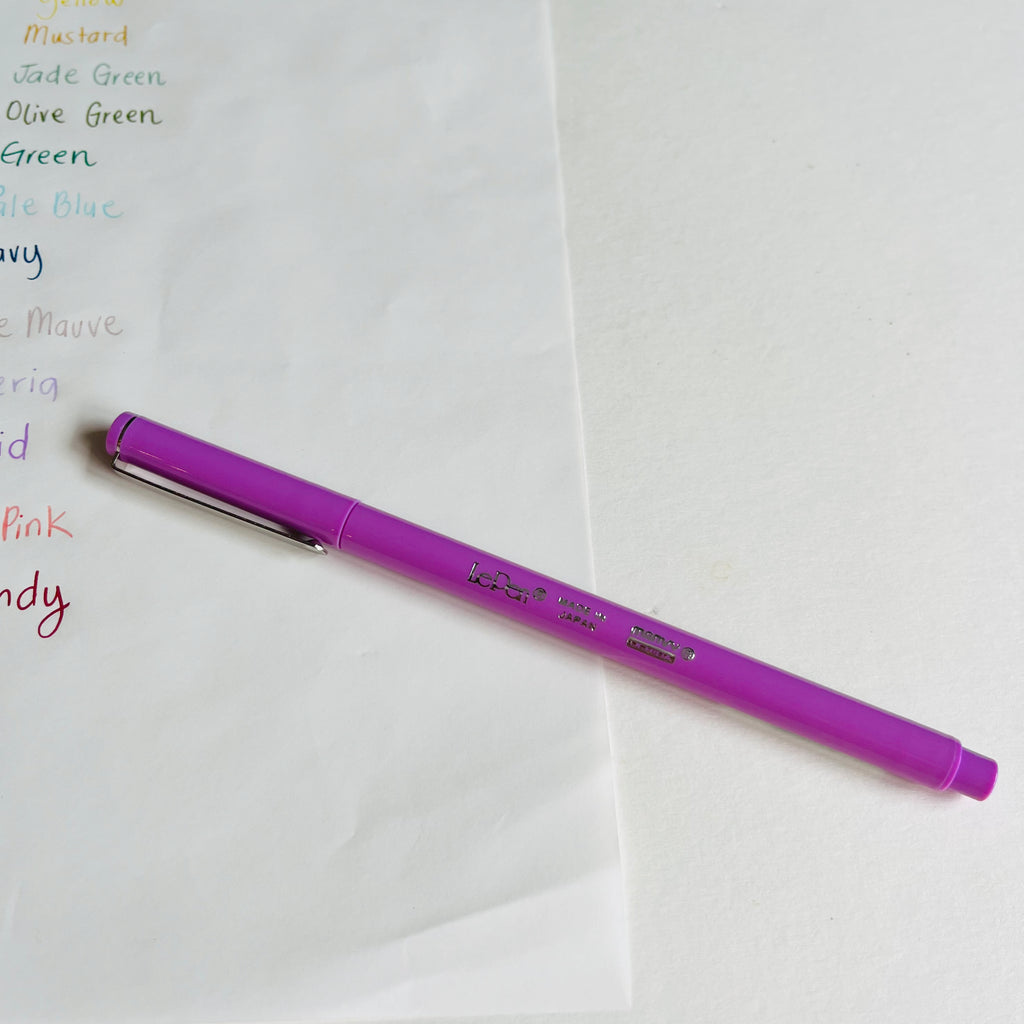 Yellow
Mustard
Jade Green
Olive Green
Green
Pale Blue
avy
e Mauve
eria
id
Pink
ndy
LePen®
MADE IN
JAPAN